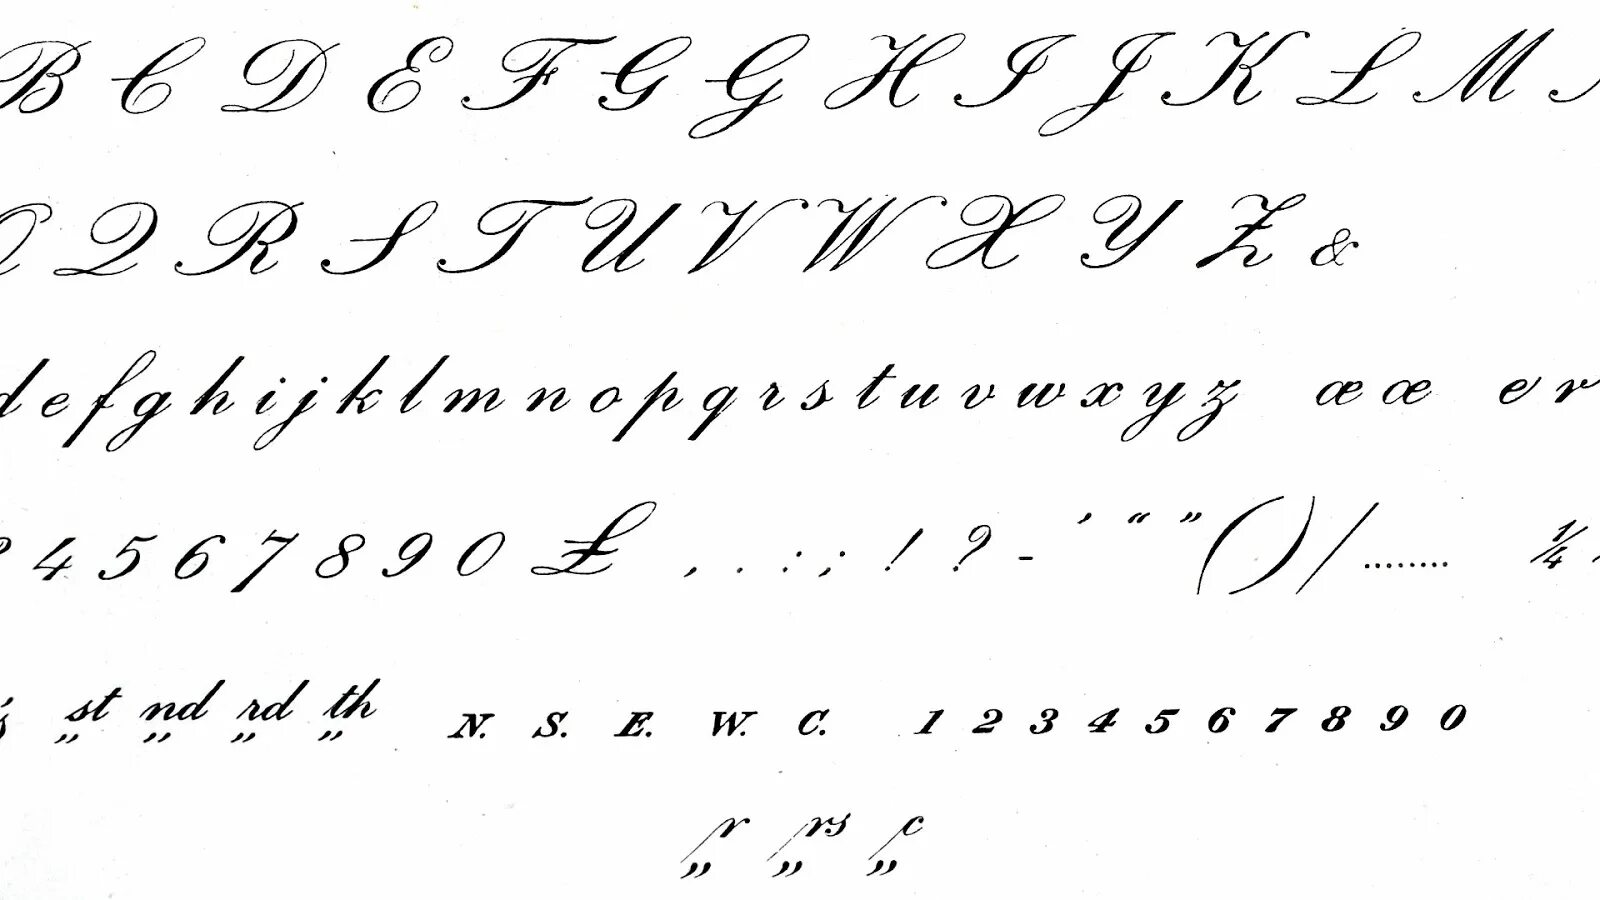 B C D E F G G H I J K L M
Q R S T U V W X Y Z &
d e f g h i j k l m n o p q r s t u v w x y z æ œ e r
4 5 6 7 8 9 0 £ , . : ; ! ? - ’ “ ” ( ) / ........ ¼
st nd rd th N. S. E. W. C. 1 2 3 4 5 6 7 8 9 0
r rs c